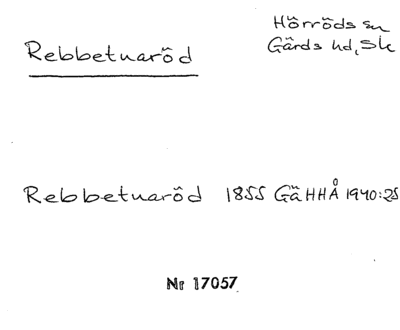 Rebbetuaröd
Hörröds sn
Gärds hd, Sk
Rebbetuaröd 1855 GäHHÅ 1940:25
Nr 17057